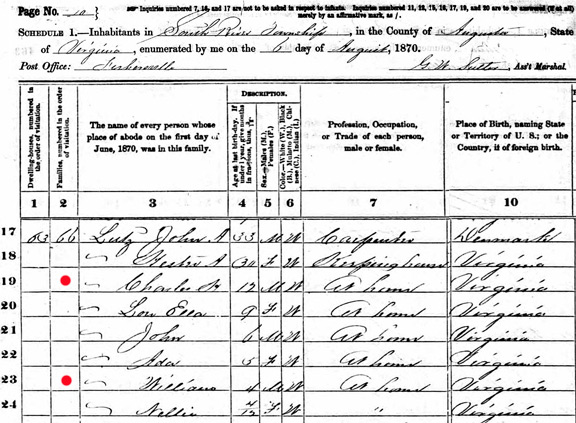 Page No. 10
Inquiries numbered 7, 16, and 17 are not to be asked in respect to infants. Inquiries numbered 11, 12, 15, 16, 17, 19, and 20 are to be answered (if at all)
merely by an affirmative mark, as /.
SCHEDULE 1.—Inhabitants in South River Township, in the County of Augusta, State
of Virginia, enumerated by me on the 6 day of August, 1870.
Post Office: Fishersville G. W. Ass't Marshal.
Dwelling-houses, numbered in the order of visitation.
Families, numbered in the order of visitation.
The name of every person whose place of abode on the first day of June, 1870, was in this family.
DESCRIPTION.
Age at last birth-day. If under 1 year, give months in fractions, thus, 3/12
Sex.—Males (M.), Females (F.)
Color.—White (W.), Black (B.), Mulatto (M.), Chinese (C.), Indian (I.)
Profession, Occupation, or Trade of each person, male or female.
Place of Birth, naming State or Territory of U. S.; or the Country, if of foreign birth.
1 2 3 4 5 6 7 10
17 63 66 Lutz John A 33 M W Carpenter Denmark
18 " A 30 F W Keeping house Virginia
19 " Charles H 12 M W At home Virginia
20 " Lou Ella 9 F W Virginia
21 " John 6 M W At home Virginia
22 " Ada 5 F W At home Virginia
23 " William 4 M W At home Virginia
24 " Nellie 4/12 F W " Virginia